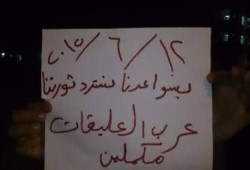 ٢٠١٥/٦/١٢
بسواعدنا نسترد ثورتنا
عرب العليقات
مكملين